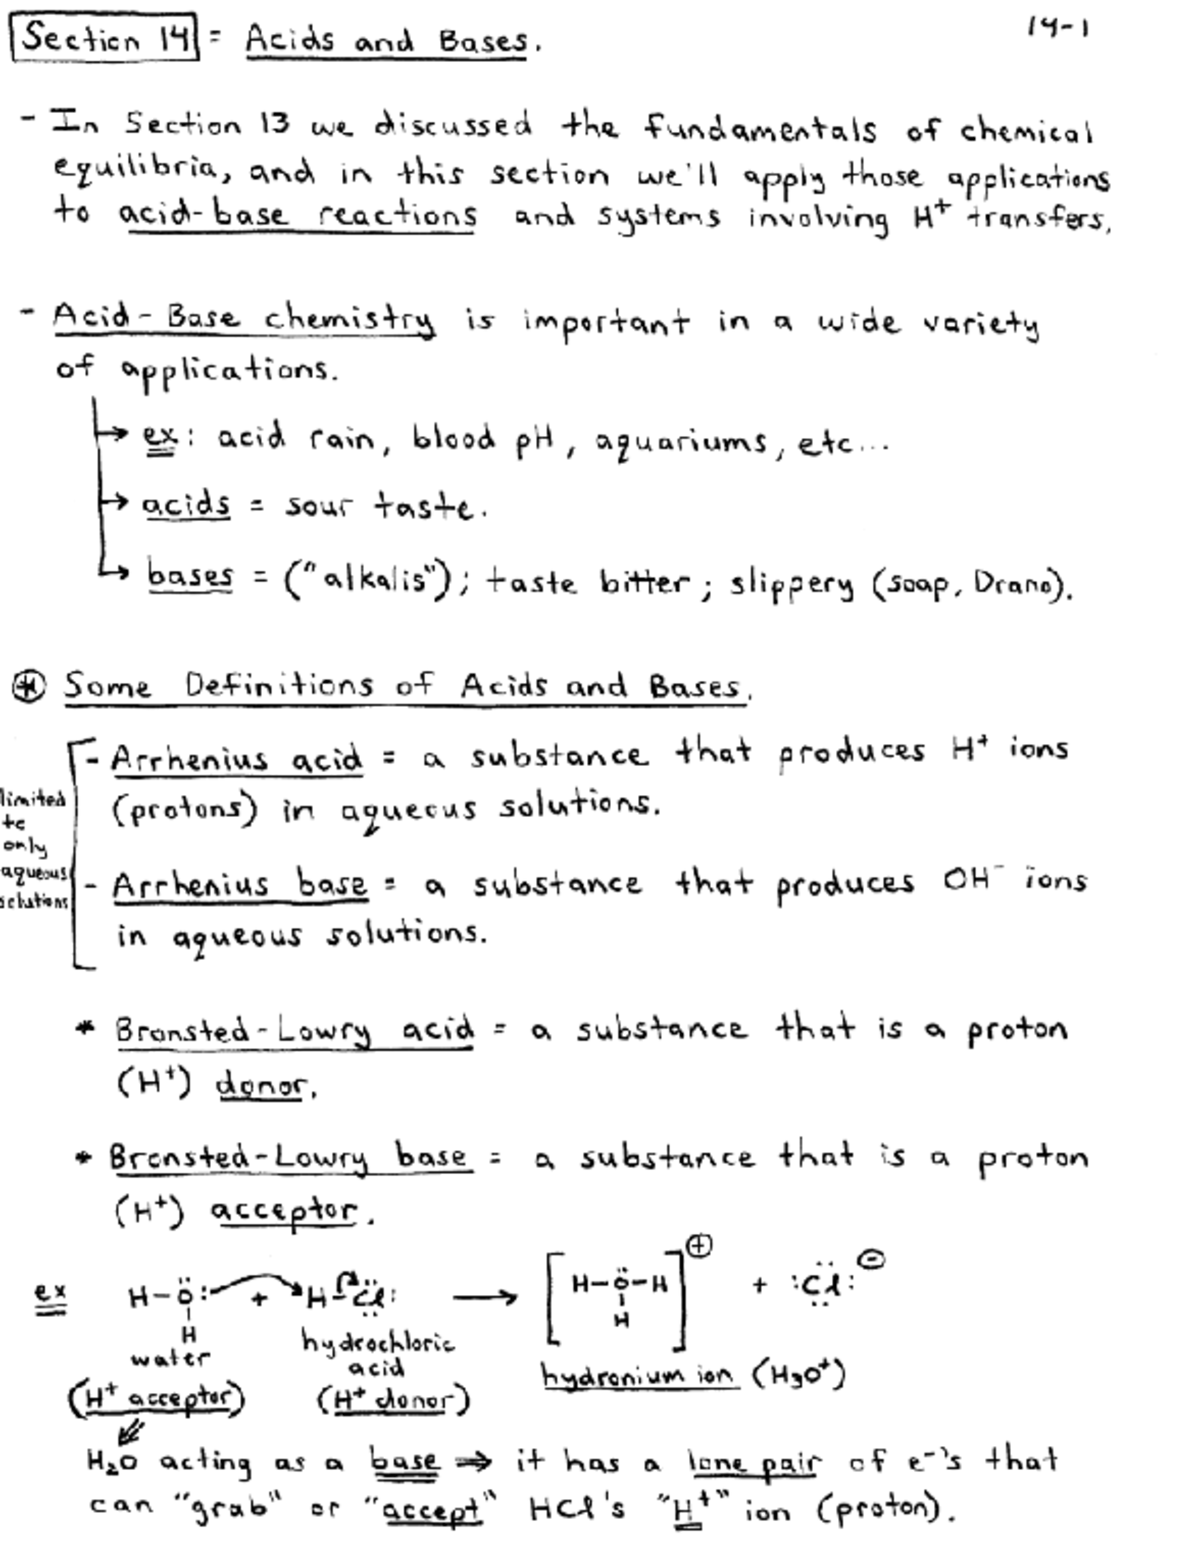 Section 14 = Acids and Bases. 14-1
- In Section 13 we discussed the fundamentals of chemical
equilibria, and in this section we'll apply those applications
to acid-base reactions and systems involving H⁺ transfers.
- Acid-Base chemistry is important in a wide variety
of applications.
→ ex: acid rain, blood pH, aquariums, etc...
→ acids = sour taste.
→ bases = ("alkalis"); taste bitter; slippery (soap, Drano).
⊛ Some Definitions of Acids and Bases.
- Arrhenius acid = a substance that produces H⁺ ions
(protons) in aqueous solutions.
limited
to
only
aqueous
solutions
- Arrhenius base = a substance that produces OH⁻ ions
in aqueous solutions.
* Bronsted-Lowry acid = a substance that is a proton
(H⁺) donor.
* Bronsted-Lowry base = a substance that is a proton
(H⁺) acceptor.
ex H-Ö: + H-Cl: → [H-Ö-H]⊕ + :Cl:⊖
H H
water hydrochloric
acid
hydronium ion (H₃O⁺)
(H⁺ acceptor) (H⁺ donor)
H₂O acting as a base ⇒ it has a lone pair of e⁻'s that
can "grab" or "accept" HCl's "H⁺" ion (proton).